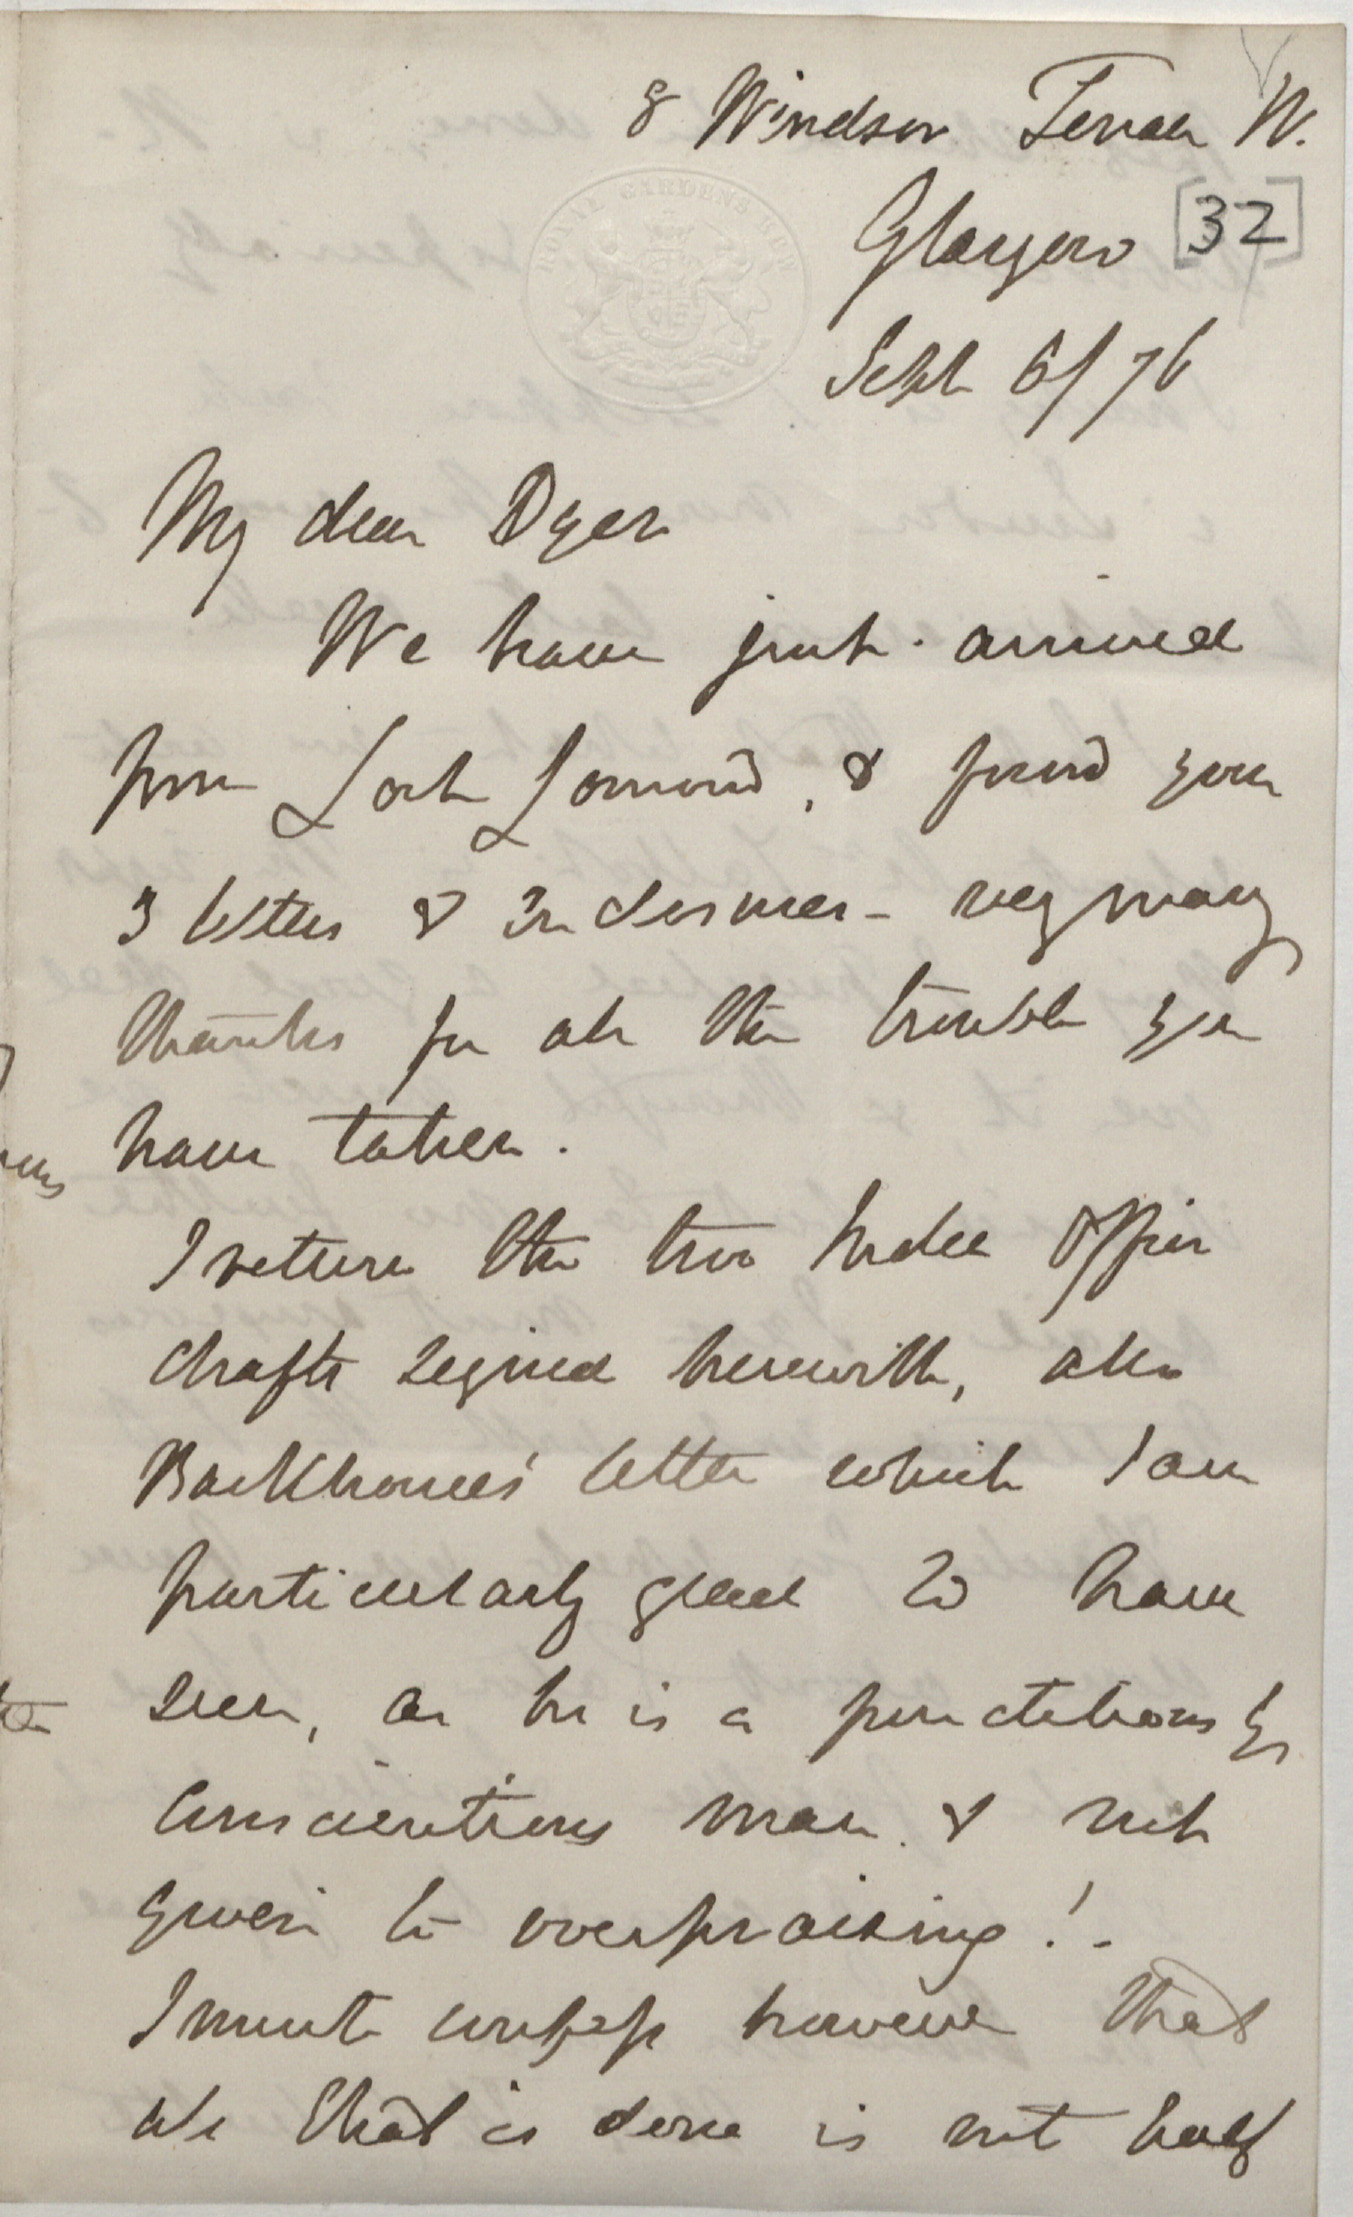 8 Windsor Terrace W.
Glasgow [32]
ROYAL GARDENS KEW
Sept 6/76
My dear Dyer
We have just arrived
from Loch Lomond, & found your
3 letters & Inclosures - very many
thanks for all the trouble you
have taken.
I return the two India Office
drafts signed herewith, also
Backhouse's letter which I am
particularly glad to have
seen, as he is a punctiliously
conscientious man & not
given to overpraising! -
I must confess however that
all that is done is not half